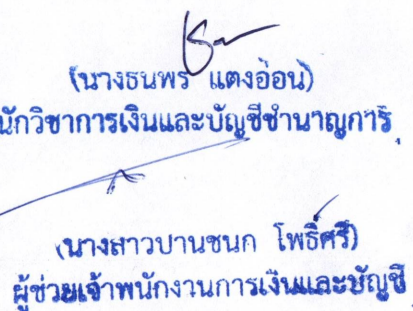 (นางธนพร แตงอ่อน)
นักวิชาการเงินและบัญชีชำนาญการ
(นางสาวปานชนก โพธิ์ศรี)
ผู้ช่วยเจ้าพนักงานการเงินและบัญชี